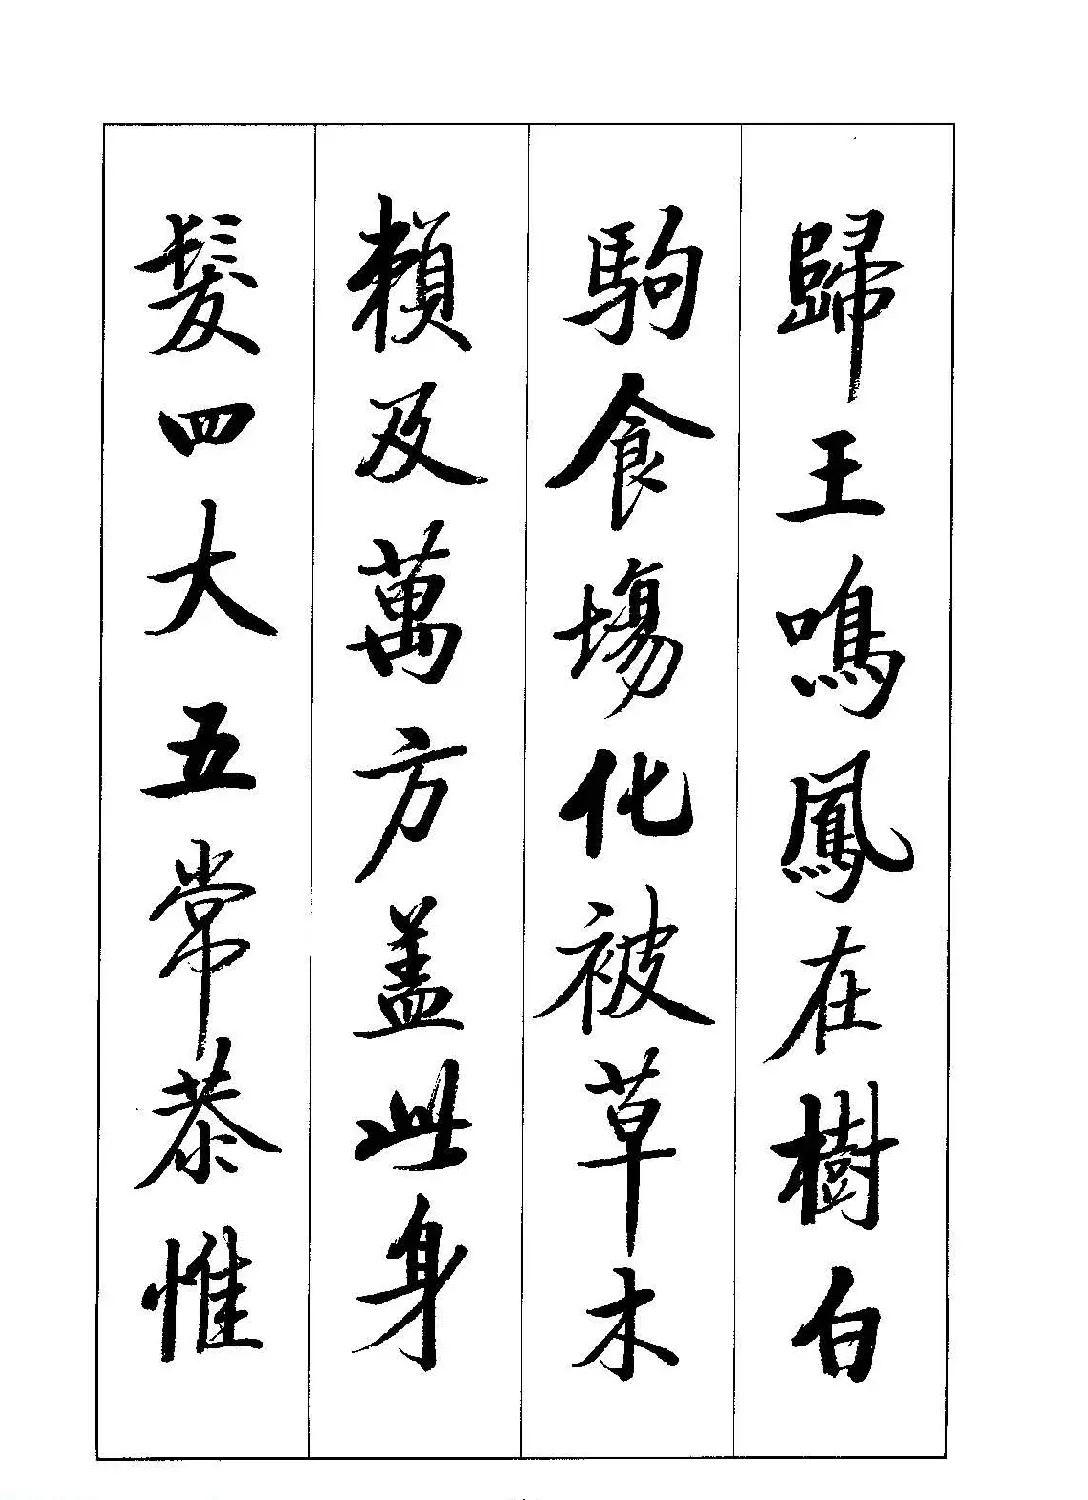 歸王鳴鳳在樹白
駒食場化被草木
賴及萬方盖此身
髮四大五常恭惟